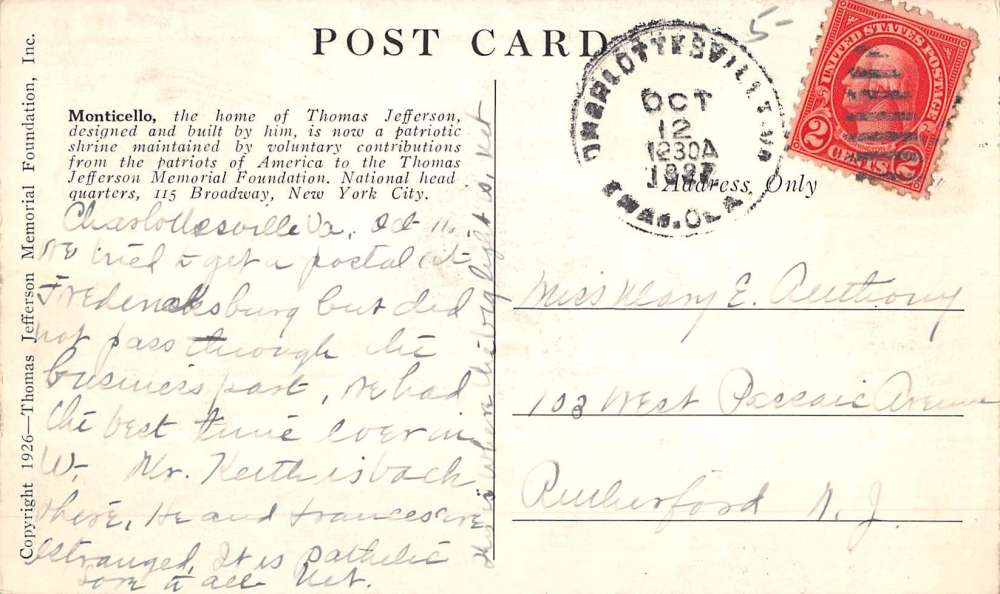 POST CARD
Copyright 1926—Thomas Jefferson Memorial Foundation, Inc.
Monticello, the home of Thomas Jefferson,
designed and built by him, is now a patriotic
shrine maintained by voluntary contributions
from the patriots of America to the Thomas
Jefferson Memorial Foundation. National head
quarters, 115 Broadway, New York City.
Charlottesville Va, Oct 11.
We tried to get a postal at
Fredericksburg but did
not pass through the
business part, we had
the best time ever in
W. Mr. Keith is back
there, He and Frances are
estranged, It is pathetic
Love to all
This is where the big light is,
CHARLOTTESVILLE, VA.
OCT
12
1230A
1927
5
UNITED STATES POSTAGE
2 CENTS 2
Address Only
Miss Mary E. Anthony
103 West Passaic Avenue
Rutherford N. J.